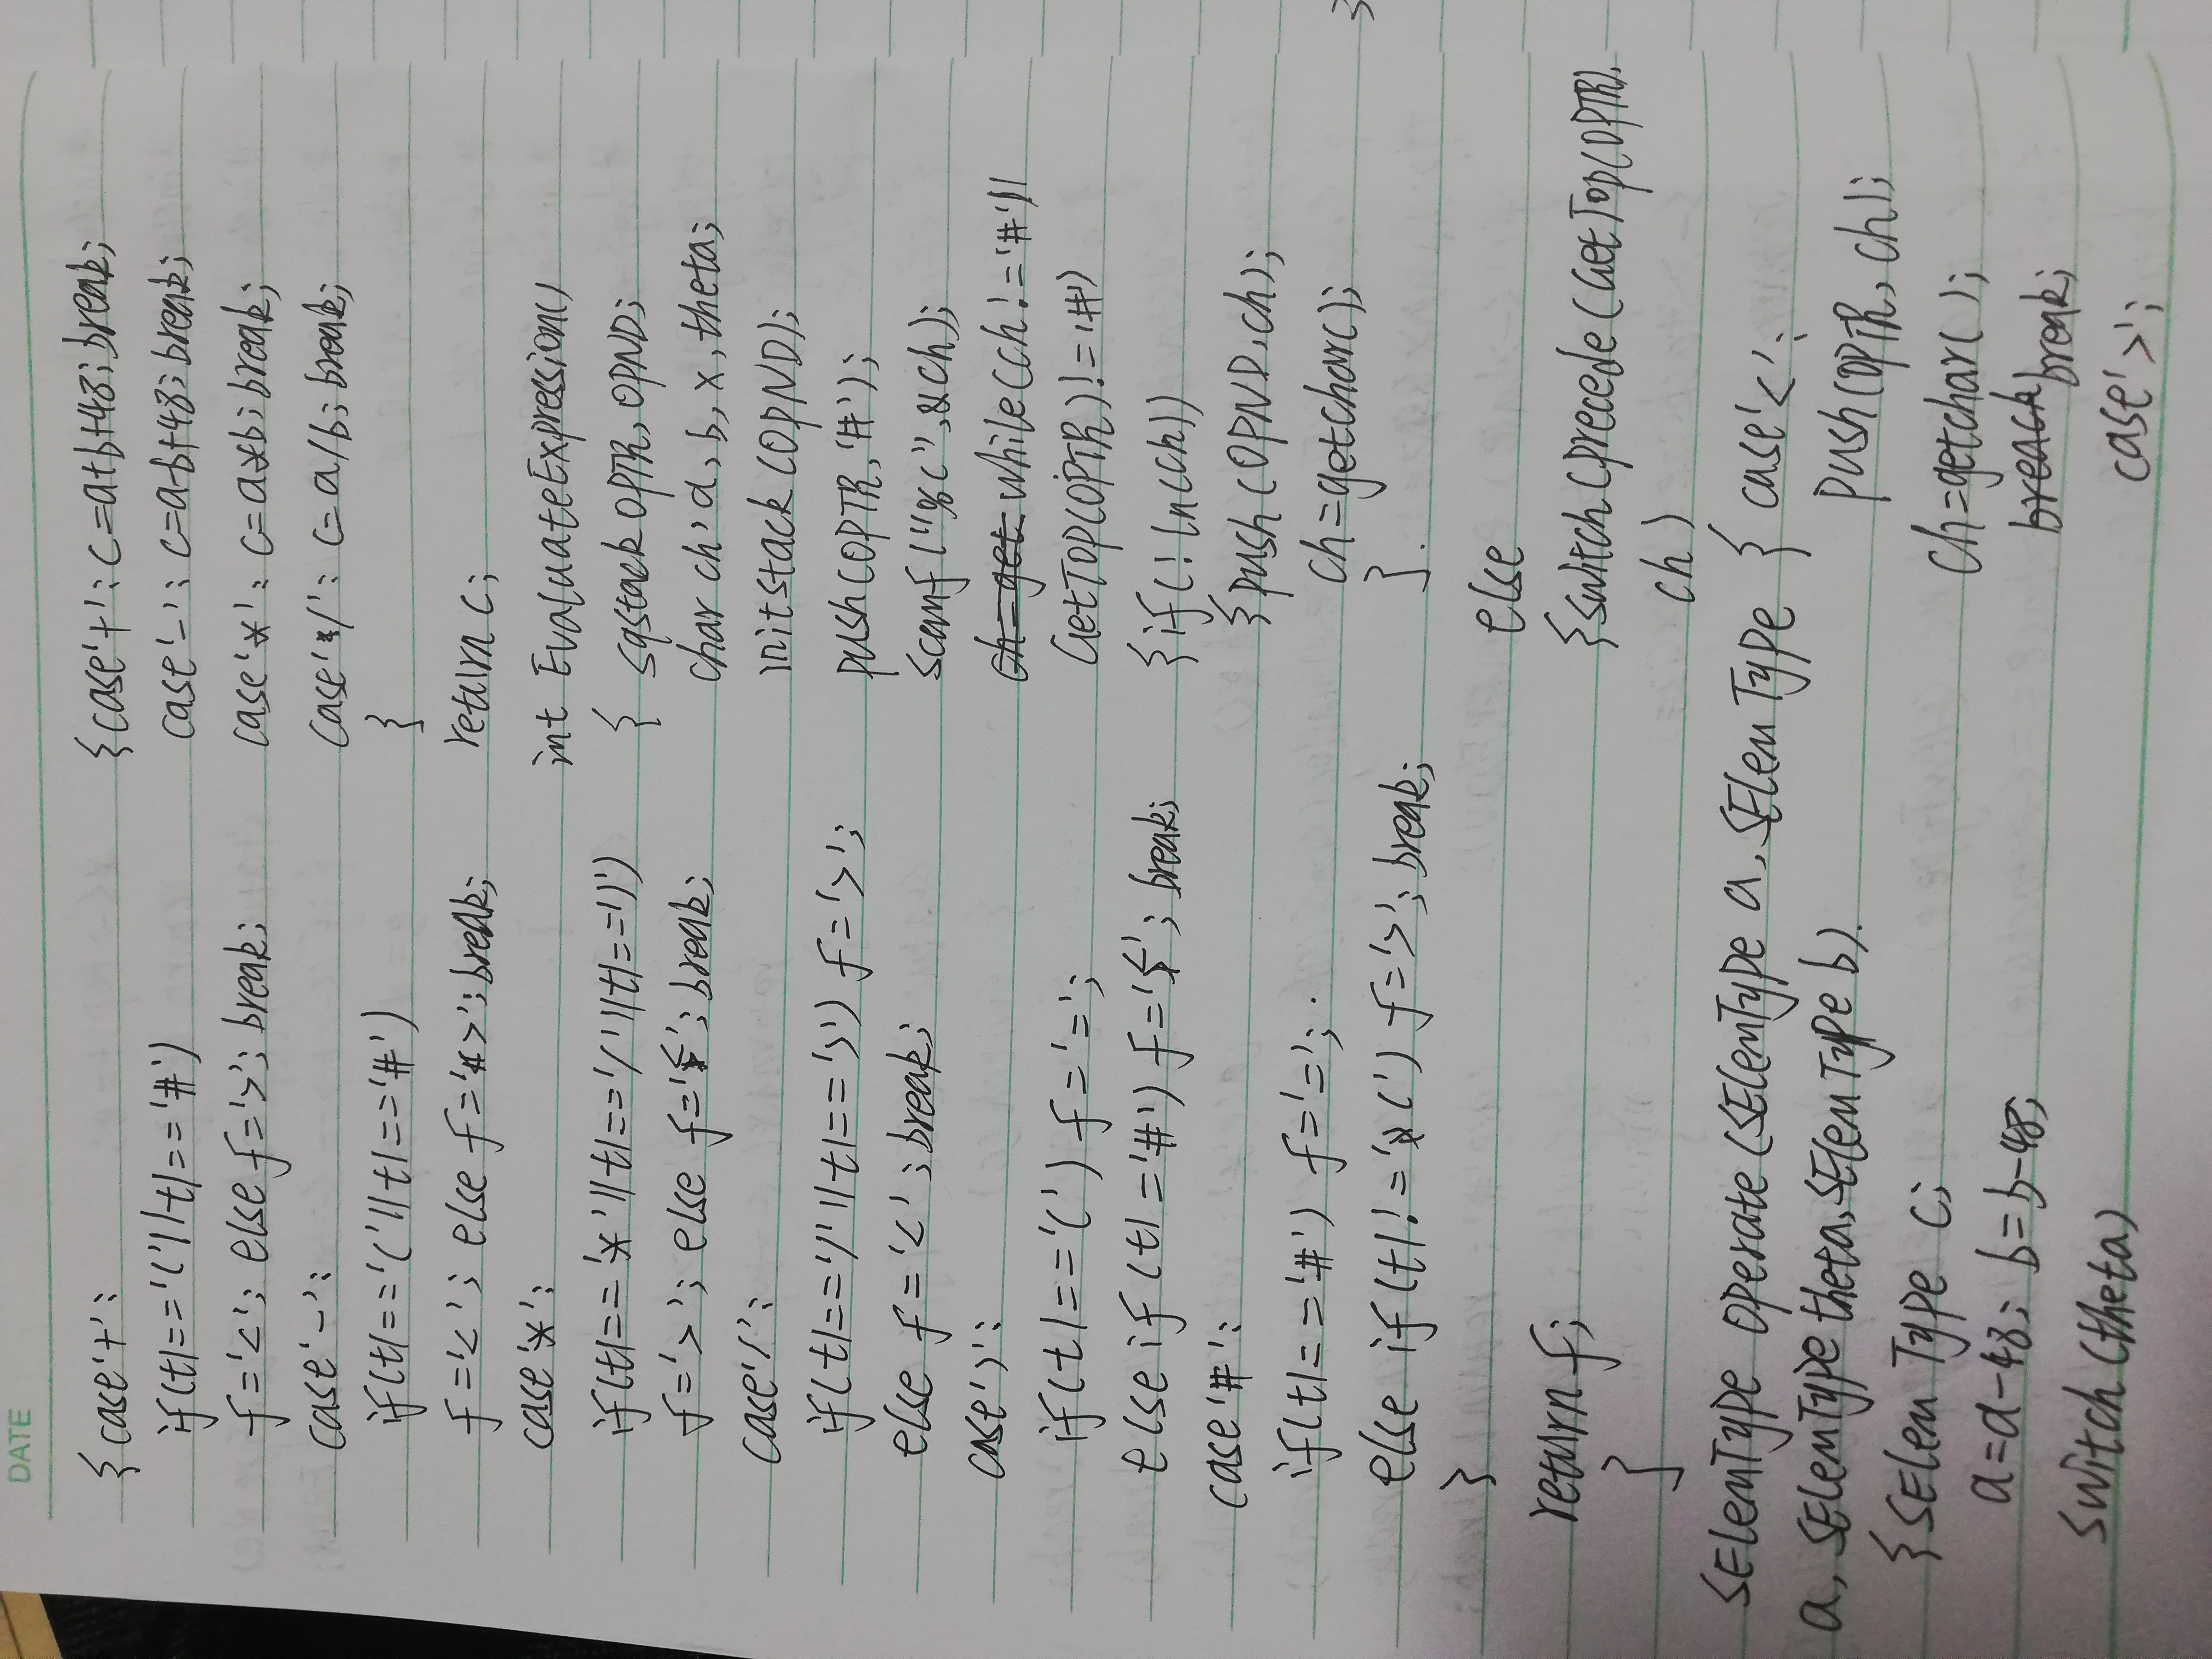 DATE
{case'+':
if(t1=='('||t1=='#')
f='<'; else f='>'; break;
case'-':
if(t1=='('||t1=='#')
f='<'; else f='>'; break;
case'*':
if(t1=='*'||t1=='/'||t1==')')
f='>'; else f='<'; break;
case'/':
if(t1=='/'||t1==')') f='>';
else f='<'; break;
case')':
if(t1=='(') f='=';
else if(t1='#') f='<'; break;
case'#':
if(t1=='#') f='=';
else if(t1!='(') f='>'; break;
}
return f;
}
SElemType Operate(SElemType a, SElemType
a, SElemType theta, SElemType b)
{SElemType c;
a=a-48; b=b-48;
switch(theta)
{case'+': c=a+b+48; break;
case'-': c=a-b+48; break;
case'*': c=a*b; break;
case'/': c=a/b; break;
}
return c;
int EvaluateExpression()
{ sqstack OPTR, OPND;
char ch, a, b, x, theta;
initstack(OPND);
push(OPTR,'#');
scanf("%c",&ch);
ch=get while(ch!='#'||
GetTop(OPTR)!='#')
{if(!In(ch))
{push(OPND,ch);
ch=getchar();
}
else
{switch(precede(GetTop(OPTR),
ch)
{ case'<':
push(OPTR,ch);
ch=getchar();
break;
case'>';